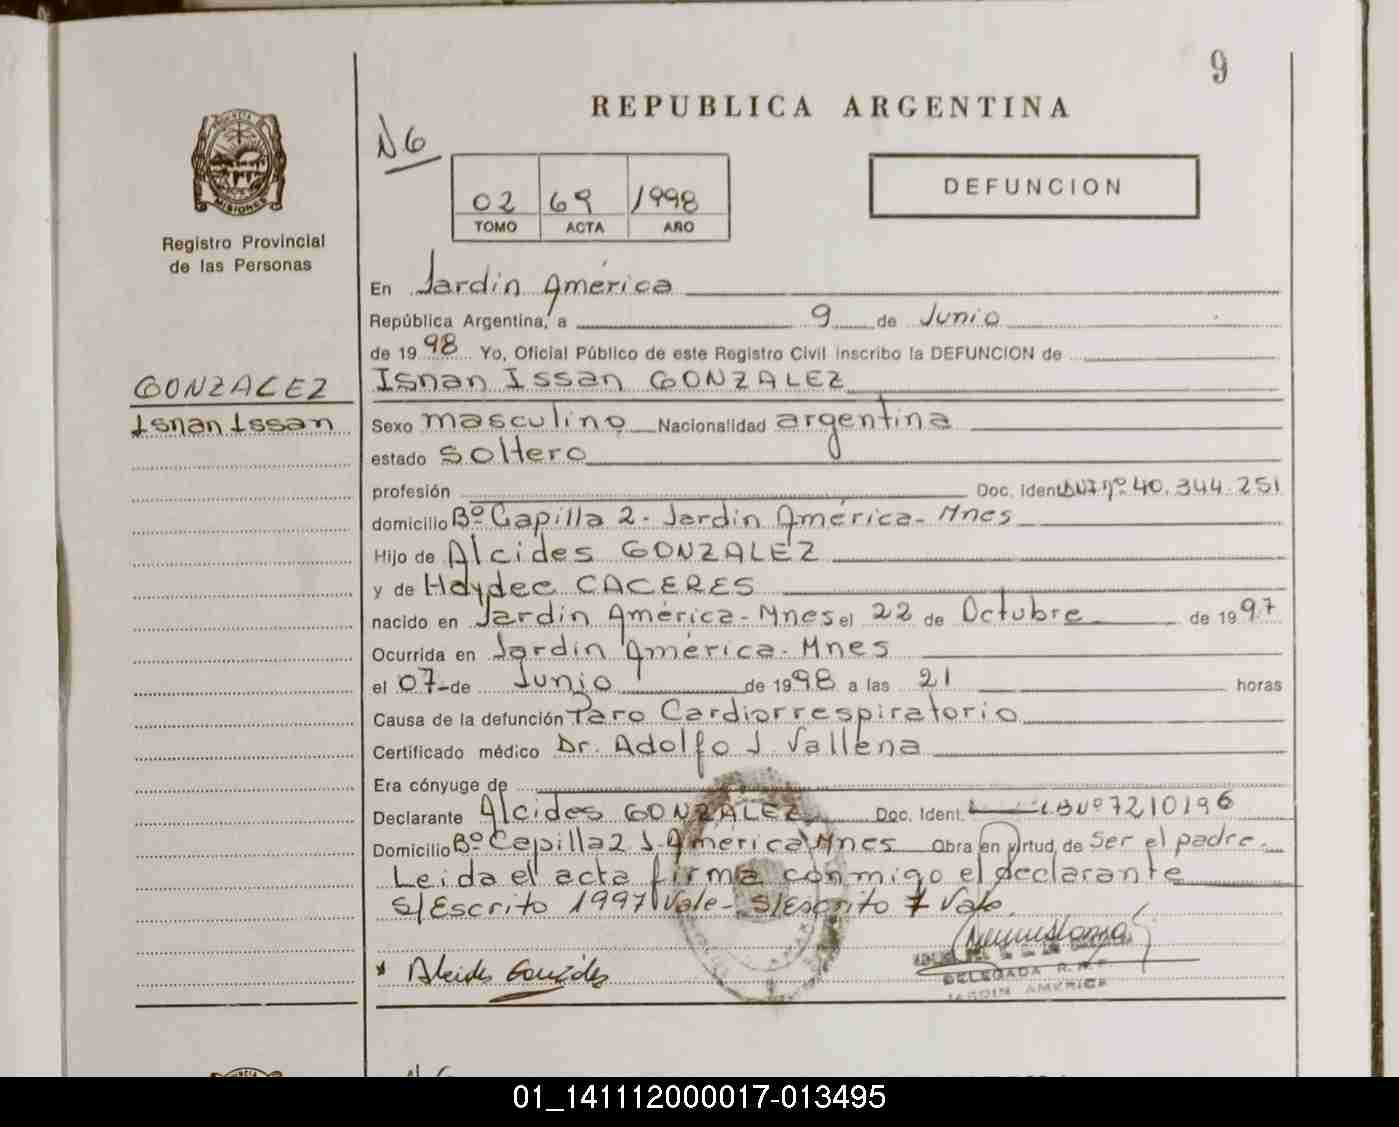 9
REPUBLICA ARGENTINA
N6
02 69 1998
TOMO ACTA AÑO
DEFUNCION
MISIONES
Registro Provincial
de las Personas
GONZALEZ
Isnan Issan
En Jardín América
República Argentina, a 9 de Junio
de 1998 Yo, Oficial Público de este Registro Civil inscribo la DEFUNCION de
Isnan Issan GONZALEZ
Sexo masculino Nacionalidad argentina
estado soltero
profesión Doc. Ident. DNI nº 40.344.251
domicilio Bº Capilla 2 - Jardín América - Mnes
Hijo de Alcides GONZALEZ
y de Haydee CACERES
nacido en Jardín América - Mnes el 22 de Octubre de 1997
Ocurrida en Jardín América - Mnes
el 07 de Junio de 1998 a las 21 horas
Causa de la defunción Paro Cardiorrespiratorio
Certificado médico Dr. Adolfo J. Vallena
Era cónyuge de
Declarante Alcides GONZALEZ Doc. Ident. Nº 7210196
Domicilio Bº Capilla 2 J. América Mnes Obra en virtud de ser el padre.
Leida el acta firma conmigo el declarante
S/Escrito 1997 Vale - S/Escrito 7 Vale
* Alcides González
DELEGADA R.P.P.
JARDIN AMERICA
01_141112000017-013495